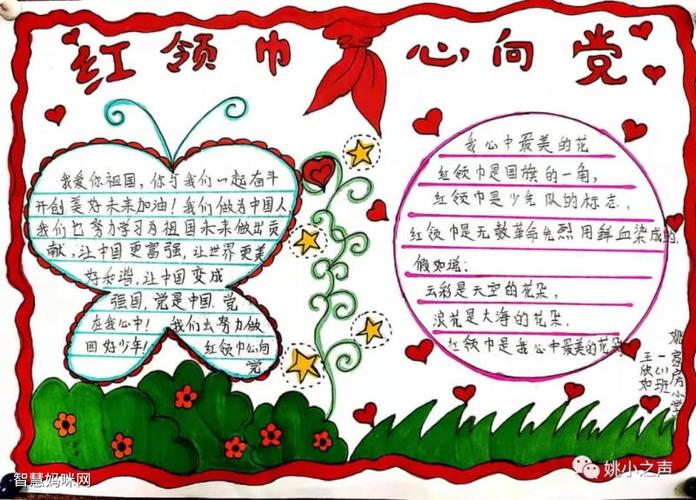 红领巾 心向党
我爱你祖国,你与我们一起奋斗
开创美好未来加油!我们做为中国人
我们也努力学习为祖国未来做出贡
献,让中国更富强,让世界更美
好和谐,让中国变成
强国,党是中国.党
在我心中!我们去努力做
四好少年!红领巾心向
党
我心中最美的花
红领巾是国旗的一角,
红领巾是少先队的标志,
红领巾是无数革命先烈用鲜血染成的.
假如说:
云彩是天空的花朵,
浪花是大海的花朵,
红领巾是我心中最美的花朵
一(1)班
王欣如
智慧妈咪网
姚小之声